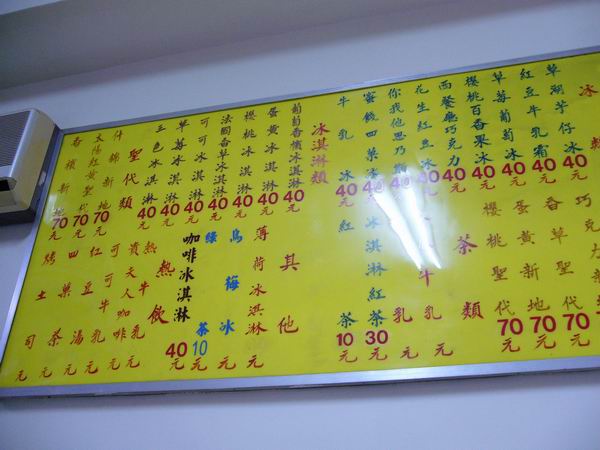 冰類
草湖芋仔冰
紅豆牛乳霜 40元
草莓葡萄冰 40元
櫻桃百香果冰 40元
西餐廳巧克力 40元
花生紅豆冰 40元
你我他思乃 40元
蜜餞四菓冰 40元
牛乳冰 40元
冰淇淋類
葡萄香檳冰淇淋 40元
蛋黃冰淇淋 40元
櫻桃冰淇淋 40元
法國香草冰淇淋 40元
可可冰淇淋 40元
草莓冰淇淋 40元
三色冰淇淋 40元
聖代類
什錦新地 70元
太陽紅黃聖代 70元
香檳新地 70元
巧克力聖代 70元
香草聖代 70元
蛋黃新地 70元
櫻桃聖代 70元
茶類
牛乳 元
乳 元
冰淇淋紅茶 30元
紅茶 10元
其他
薄荷冰淇淋 元
烏梅冰 元
綠茶 10元
咖啡冰淇淋 40元
熱飲
熱牛乳 元
貴夫人咖啡 元
可可牛乳 元
紅豆湯 元
四菓茶 元
烤土司 元